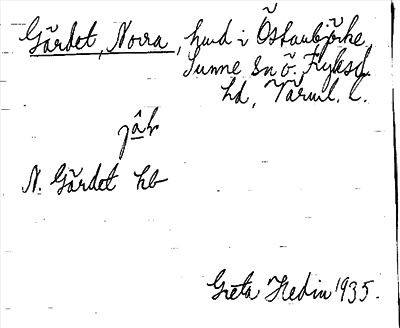 Gärdet, Norra, hmd i Östanbjörke
Sunne sn Ö. Fryksd.
hd, Värml. l.
jä̂ḷ
N. Gärdet hb
Greta Hedin 1935.